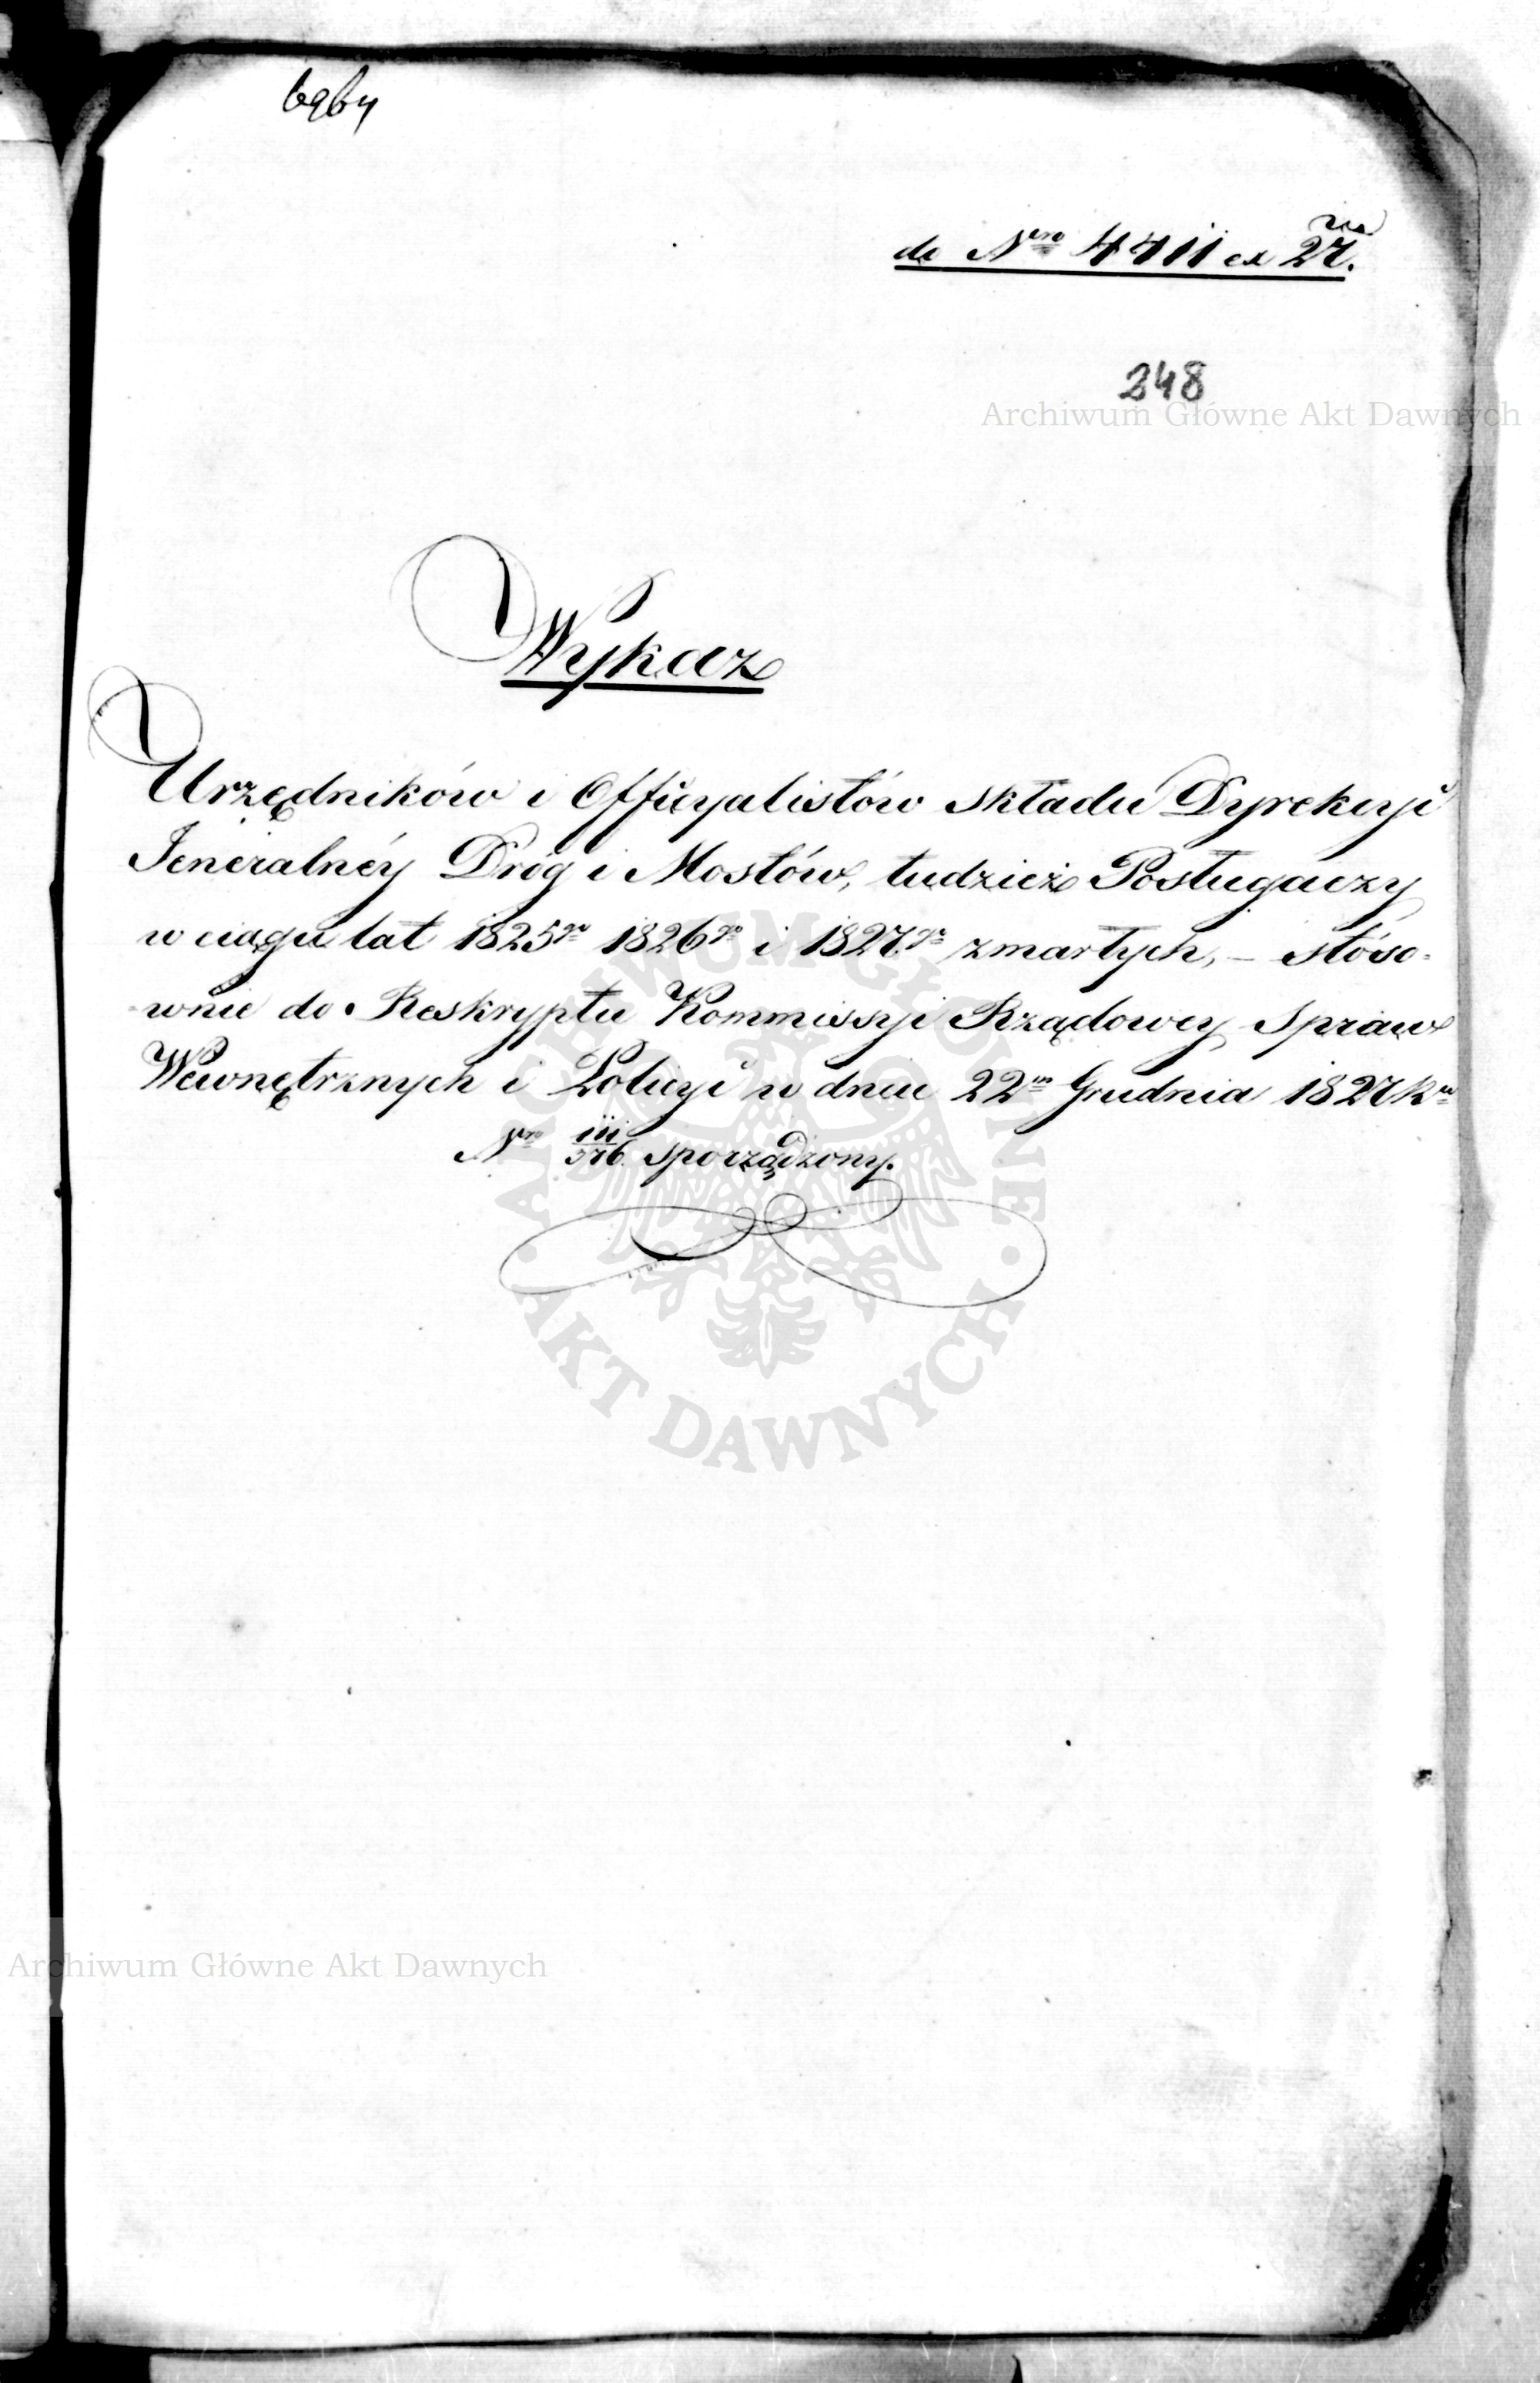 do Nro 4411 ex 27.
248
Archiwum Główne Akt Dawnych
Wykaz
Urzędników i Officyalistów składu Dyrekcyi
Jeneralnéy Dróg i Mostów, tudzież Posługaczy
w ciągu lat 1825go 1826go i 1827go zmarłych, – stóso-
-wnie do Reskryptu Kommissyi Rządowey Spraw
Wewnętrznych i Policyi w dniu 22m Grudnia 1827 R
Nro sporządzony.
ARCHIWUM GŁÓWNE
AKT DAWNYCH
Archiwum Główne Akt Dawnych